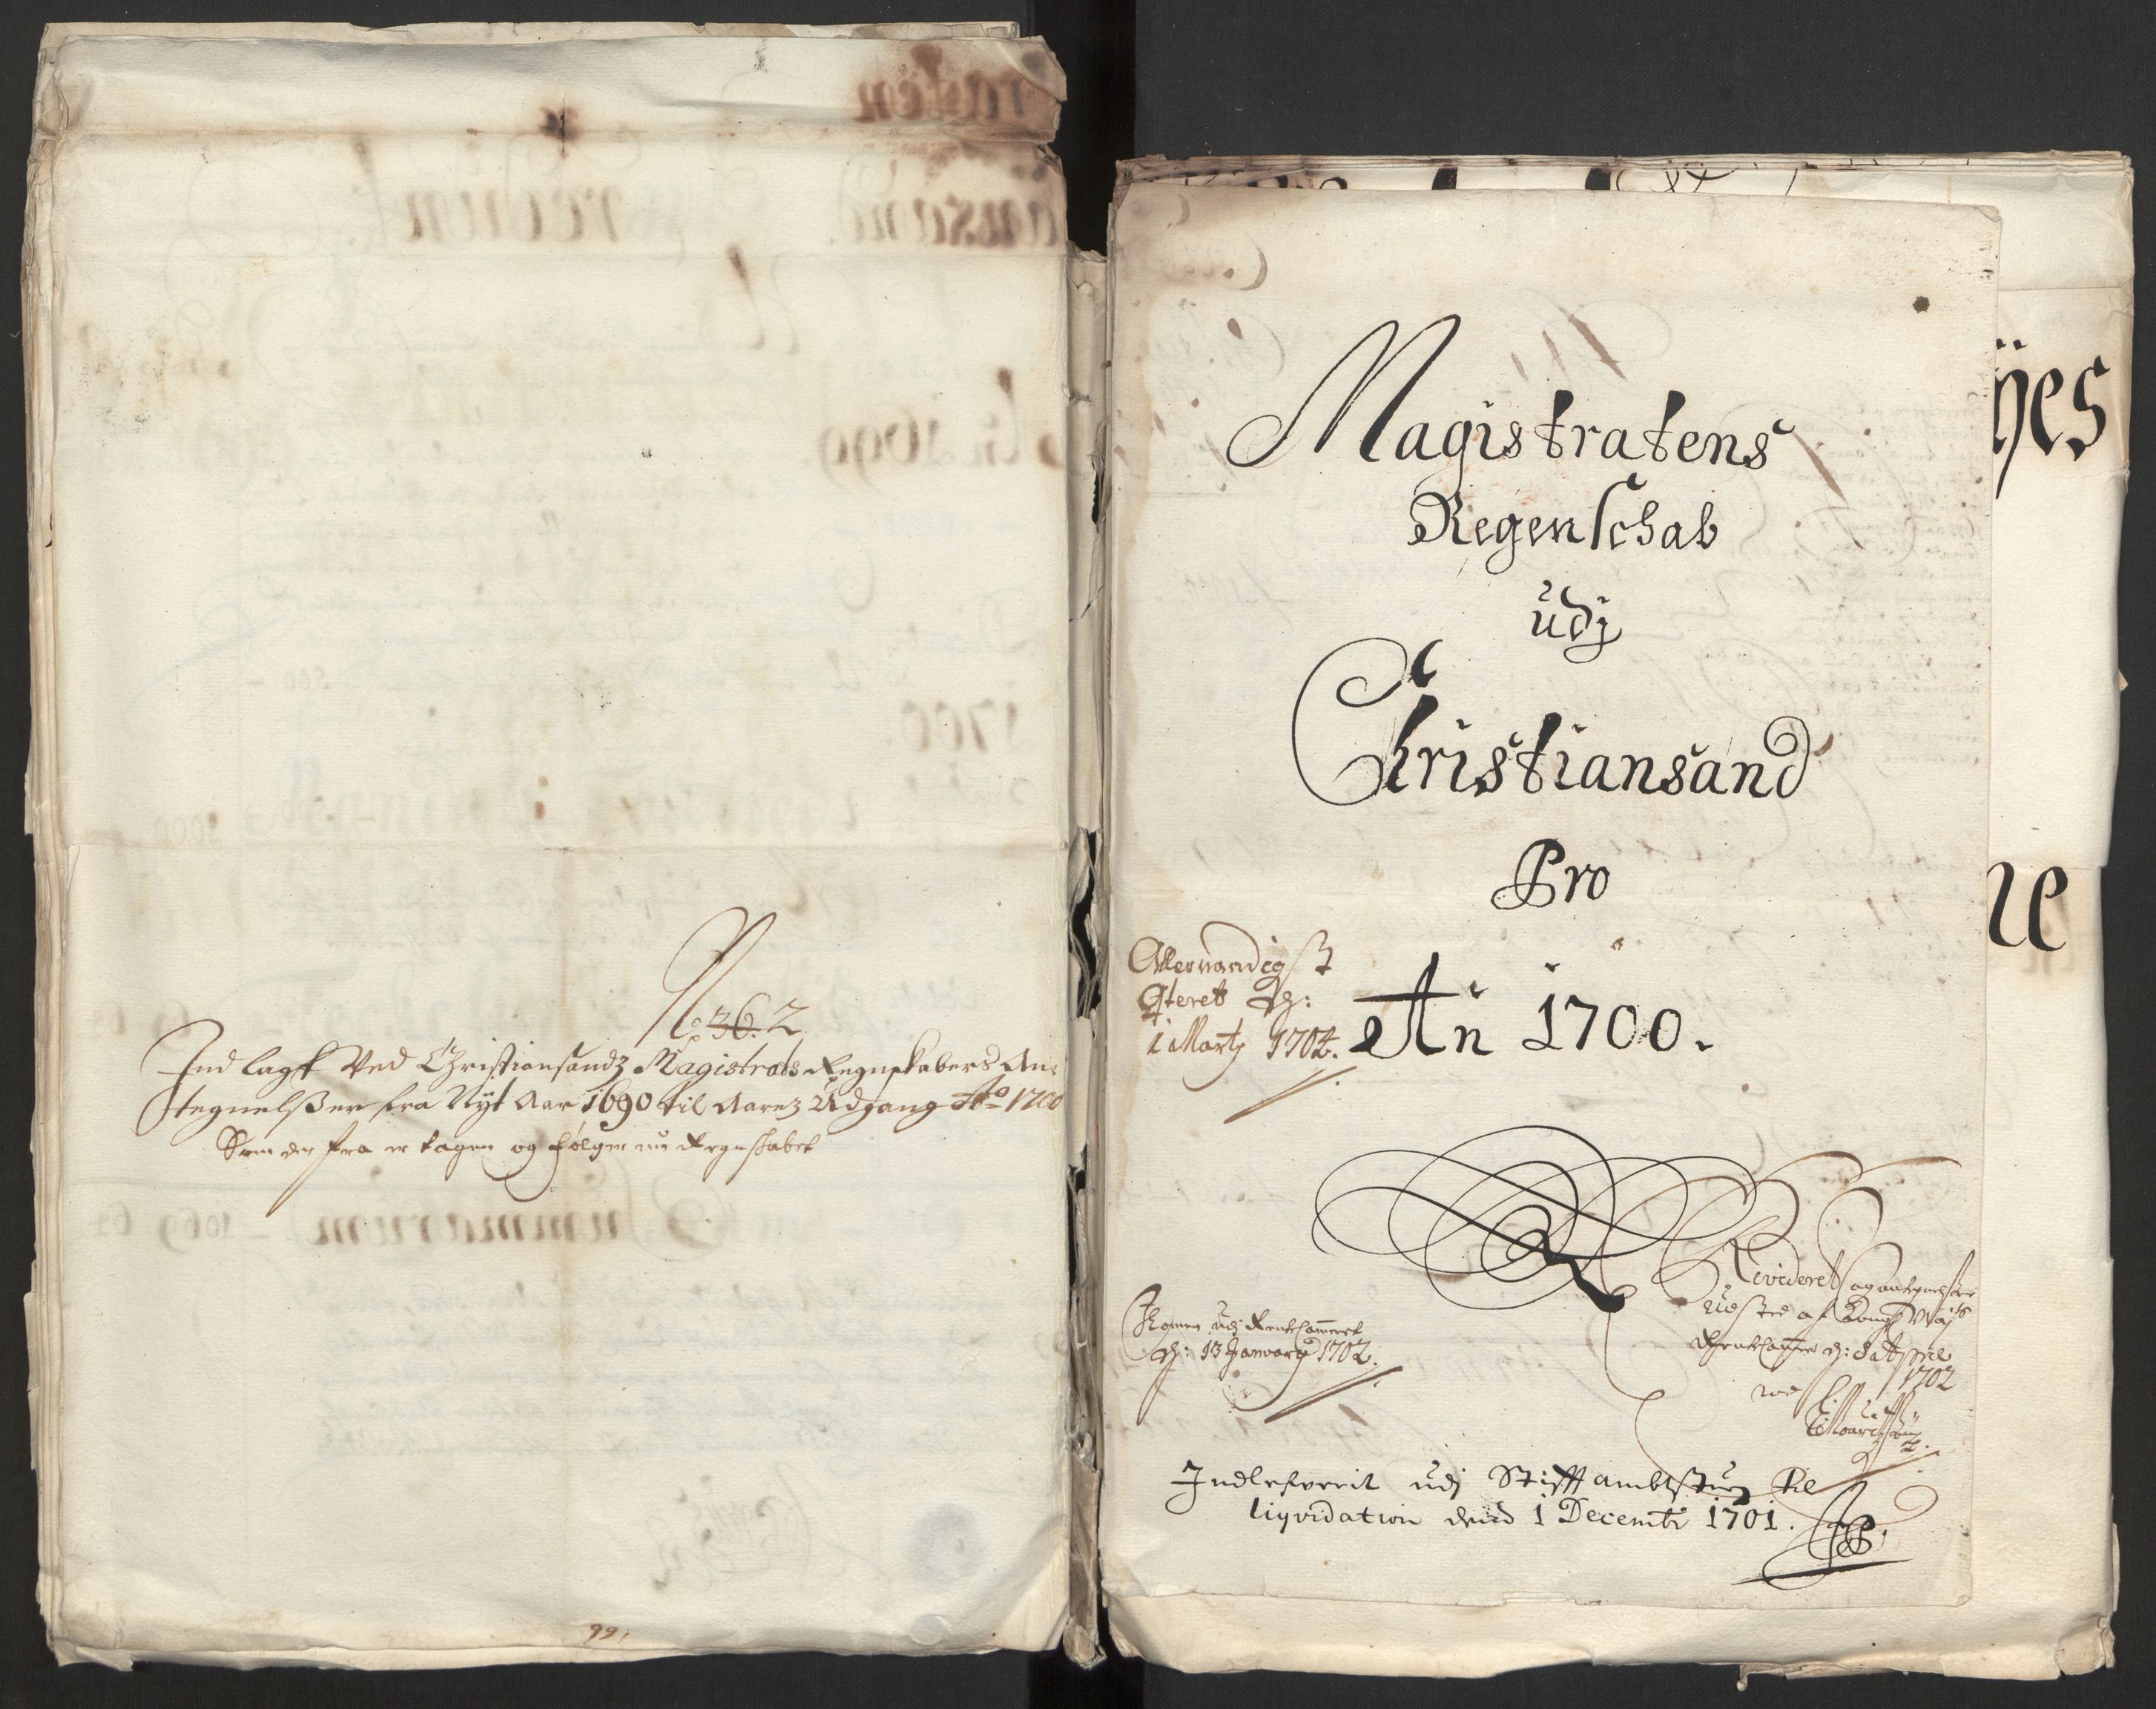 No 36. 2
Ind lagt Ved Christiansandz Magistrats Regnskabers An-
tegnelsser fra Nyt Aar 1690 til Aarez Udgang Ao 1700
Som der fra er tagen og følger nu Regnskabet
99.
Magistratens
Regenschab
udj
Christiansand
Pro
An 1700.
Allerunderdigst
qteret d:
1 Marty 1704.
Komen udj Rentecammeret
d: 13 January 1702.
Revideret og antegnelser
udsted af Kongl May ts
Rentecammer d: 8 April
1702
Indlefverit udj Stifft ambtstuen til
liqvidation dend 1 Decembr 1701.